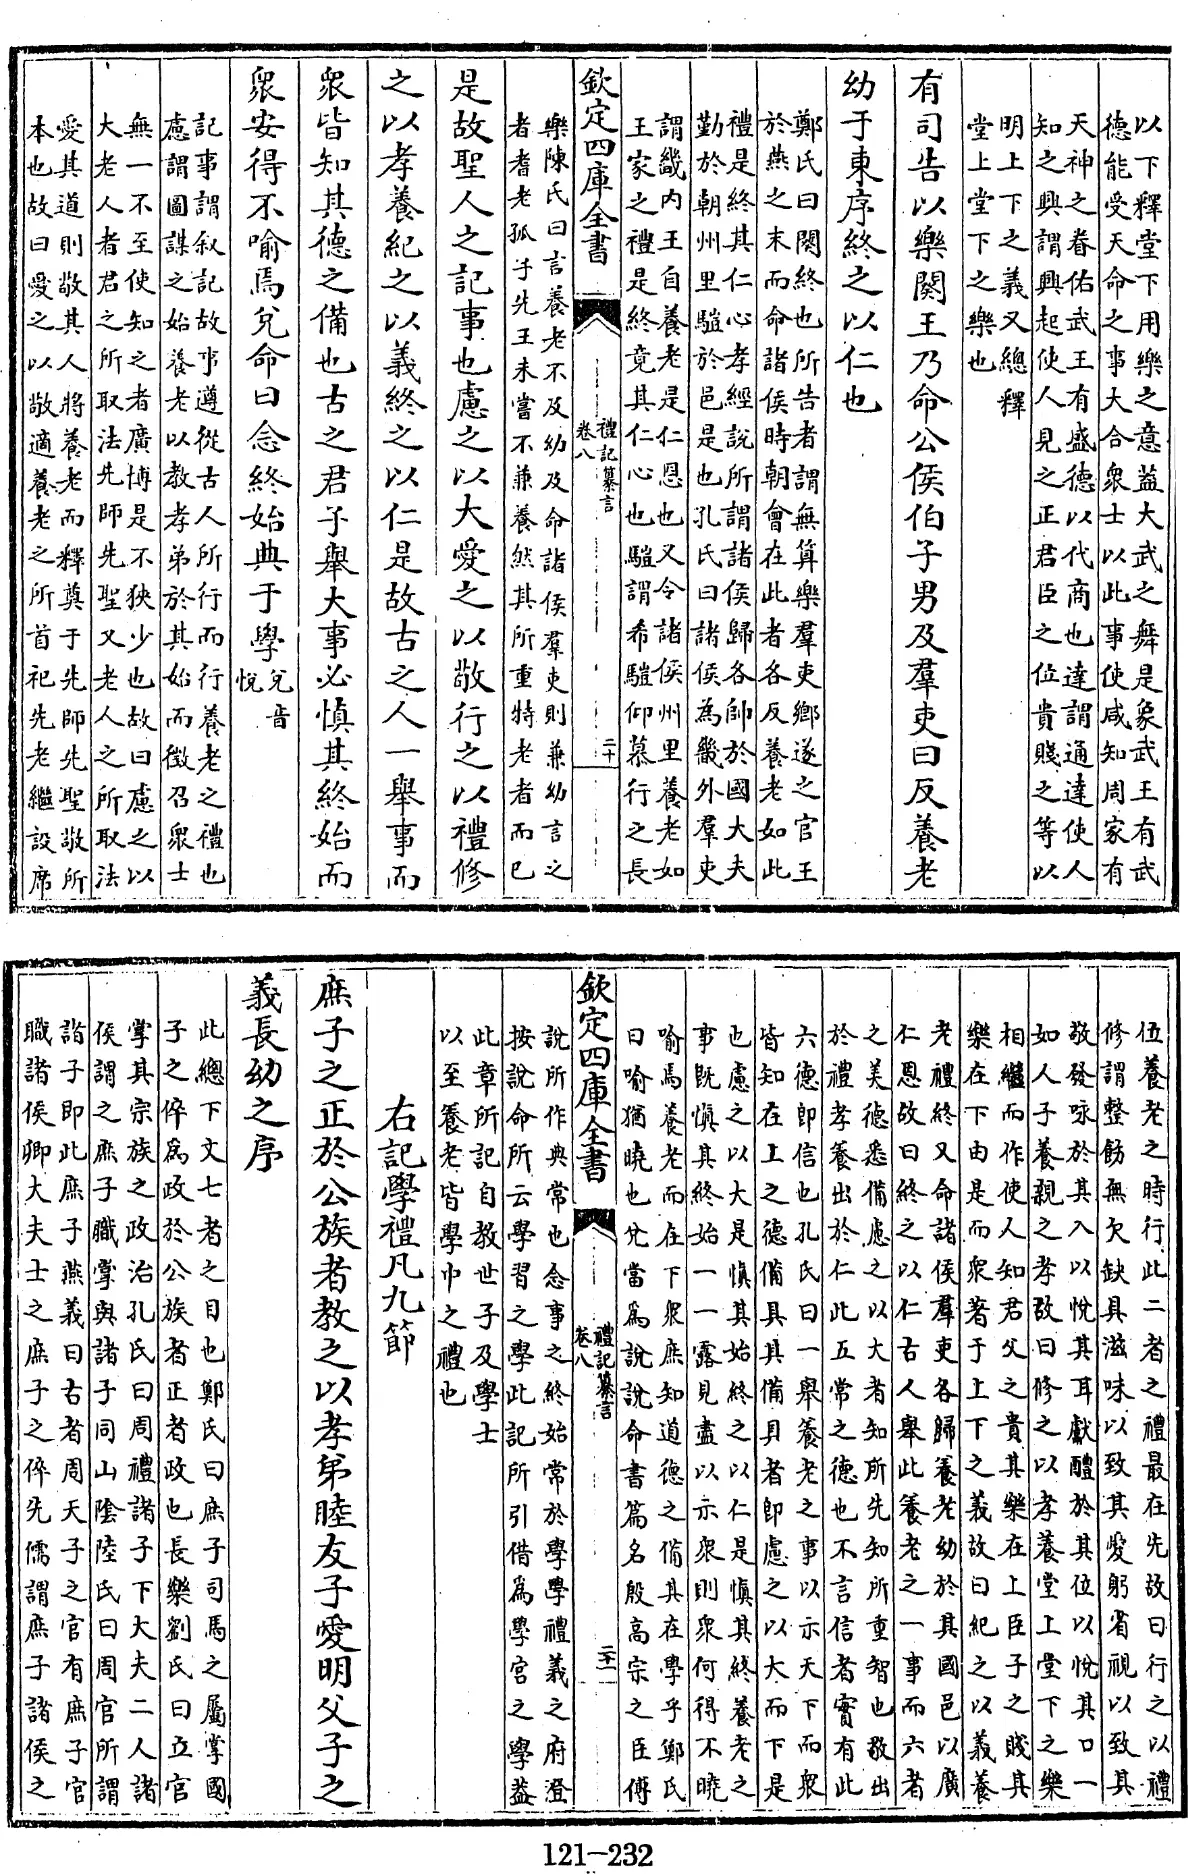 以下釋堂下用樂之意蓋大武之舞是象武王有武
德能受天命之事大合衆士以此事使咸知周家有
天神之眷佑武王有盛德以代商也達謂通達使人
知之興謂興起使人見之正君臣之位貴賤之等以
明上下之義又總釋
堂上堂下之樂也
有司告以樂闋王乃命公侯伯子男及羣吏曰反養老
幼于東序終之以仁也
鄭氏曰闋終也所告者謂無算樂羣吏鄉遂之官王
於燕之末而命諸侯時朝會在此者各反養老如此
禮是終其仁心孝經說所謂諸侯歸各帥於國大夫
勤於朝州里驩於邑是也孔氏曰諸侯為畿外羣吏
謂畿内王自養老是仁恩也又令諸侯州里養老如
王家之禮是終竟其仁心也驩謂希驩仰慕行之長
欽定四庫全書
禮記纂言
卷八
二十
樂陳氏曰言養老不及幼及命諸侯羣吏則兼幼言之
者耆老孤子先王未嘗不兼養然其所重特老者而已
是故聖人之記事也慮之以大愛之以敬行之以禮修
之以孝養紀之以義終之以仁是故古之人一舉事而
衆皆知其德之備也古之君子舉大事必慎其終始而
衆安得不喻焉兌命曰念終始典于學
兌音
悦
記事謂叙記故事遵從古人所行而行養老之禮也
慮謂圖謀之始養老以教孝弟於其始而徵召衆士
無一不至使知之者廣博是不狹少也故曰慮之以
大老人者君之所取法先師先聖又老人之所取法
愛其道則敬其人將養老而釋奠于先師先聖敬所
本也故曰愛之以敬適養老之所首祀先老繼設席
位養老之時行此二者之禮最在先故曰行之以禮
修謂整飭無欠缺具滋味以致其愛躬省視以致其
敬發咏於其入以悦其耳獻醴於其位以悦其口一
如人子養親之孝故曰修之以孝養堂上堂下之樂
相繼而作使人知君父之貴其樂在上臣子之賤其
樂在下由是而衆著于上下之義故曰紀之以義養
老禮終又命諸侯羣吏各歸養老幼於其國邑以廣
仁恩故曰終之以仁古人舉此養老之一事而六者
之美德悉備慮之以大者知所先知所重智也敬出
於禮孝養出於仁此五常之德也不言信者實有此
六德即信也孔氏曰一舉養老之事以示天下而衆
皆知在上之德備具其備具者即慮之以大而下是
也慮之以大是慎其始終之以仁是慎其終養老之
事既慎其終始一一露見盡以示衆則衆何得不曉
喻焉養老而在下衆庶知道德之備其在學乎鄭氏
曰喻猶曉也兌當為說說命書篇名殷高宗之臣傅
欽定四庫全書
禮記纂言
卷八
二十一
說所作典常也念事之終始常於學學禮義之府澄
按說命所云學習之學此記所引借為學宮之學蓋
此章所記自教世子及學士
以至養老皆學中之禮也
右記學禮凡九節
庶子之正於公族者教之以孝弟睦友子愛明父子之
義長幼之序
此總下文七者之目也鄭氏曰庶子司馬之屬掌國
子之倅為政於公族者正者政也長樂劉氏曰立官
掌其宗族之政治孔氏曰周禮諸子下大夫二人諸
侯謂之庶子職掌與諸子同山陰陸氏曰周官所謂
諸子即此庶子燕義曰古者周天子之官有庶子官
職諸侯卿大夫士之庶子之倅先儒謂庶子諸侯之
121—232